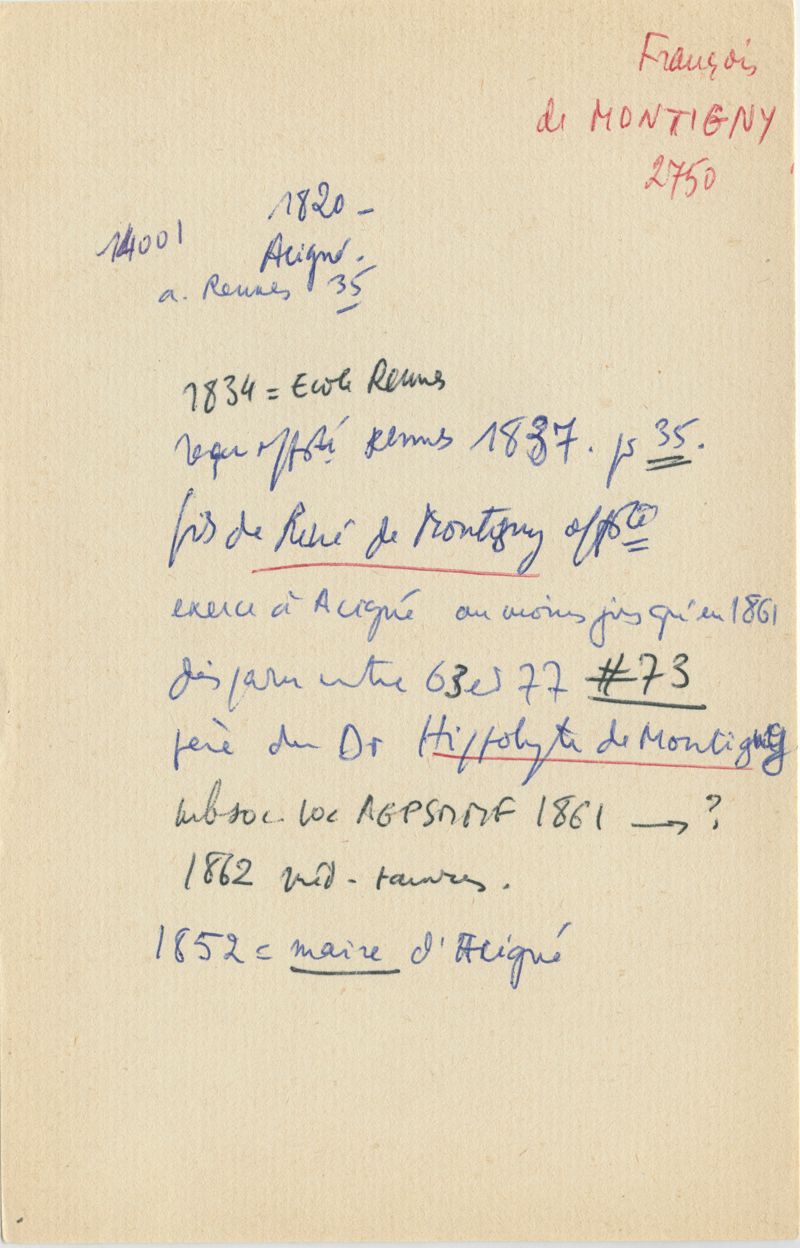 François
de MONTIGNY
2750
1820 -
14001
Acigné.
a. Rennes 35
1834 = Ecole Rennes
reçu off sté Rennes 1837. ps 35.
fils de René de Montigny off sté
exerce à Acigné au moins jusqu'en 1861
disparu entre 63 et 77 #73
père du Dr Hippolyte de Montigny
mb soc. loc AGPSMMF 1861 → ?
1862 méd-
1852 = maire d'Acigné